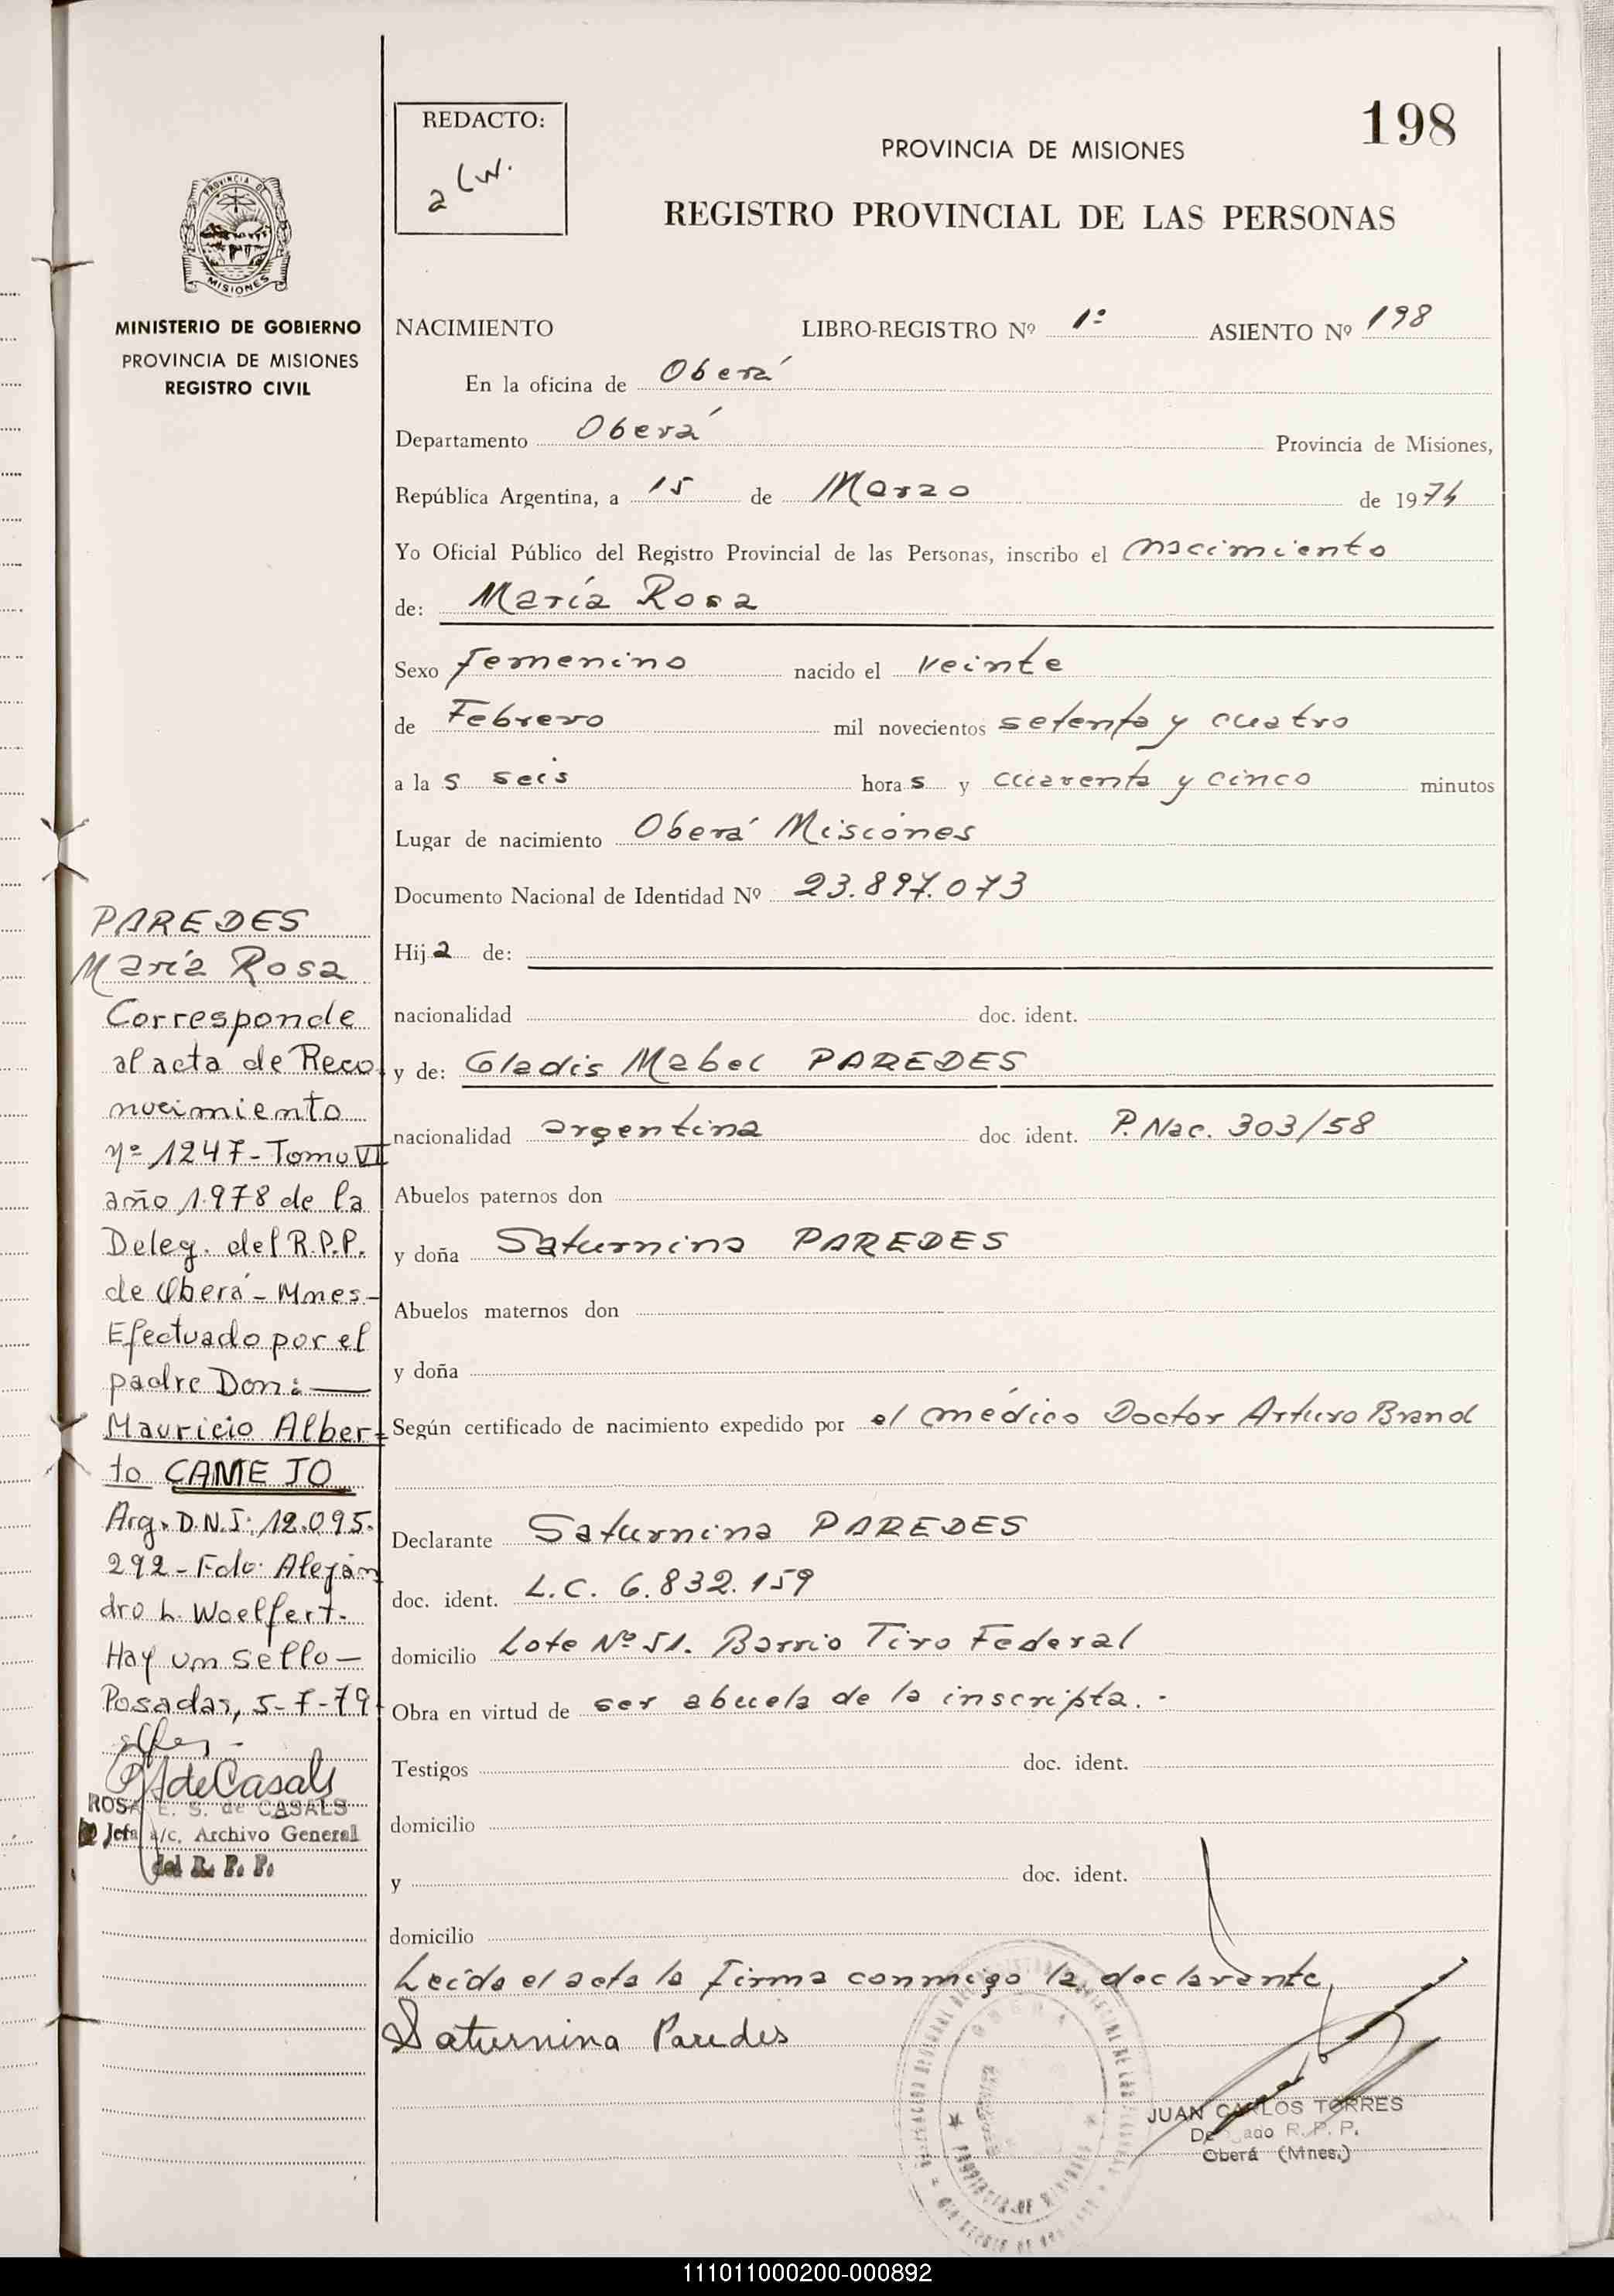 198
REDACTO:
PROVINCIA DE MISIONES
REGISTRO PROVINCIAL DE LAS PERSONAS
PROVINCIA DE
MISIONES
MINISTERIO DE GOBIERNO
PROVINCIA DE MISIONES
REGISTRO CIVIL
PAREDES
María Rosa
Corresponde
al acta de Reco
nocimiento
Nº 1247-Tomo VI
año 1978 de la
Deleg. del R.P.P.
de Oberá - Mnes-
Efectuado por el
padre Don:
Mauricio Alber-
to CAMEJO
Arg. D.N.I. 12.095.
292 - Fdo. Aleján
dro L. Woelfert.
Hay un sello -
Posadas, 5-7-79
ROSA E. S. de CASALS
Jefa a/c. Archivo General
del R. P. P.
NACIMIENTO LIBRO-REGISTRO Nº 1º ASIENTO Nº 198
En la oficina de Oberá
Departamento Oberá Provincia de Misiones,
República Argentina, a 15 de Marzo de 1974
Yo Oficial Público del Registro Provincial de las Personas, inscribo el nacimiento
de: María Rosa
Sexo femenino nacido el veinte
de Febrero mil novecientos setenta y cuatro
a la s seis hora s y cuarenta y cinco minutos
Lugar de nacimiento Oberá Misiones
Documento Nacional de Identidad Nº 23.897.073
Hij a de:
nacionalidad doc. ident.
y de: Gladis Mabel PAREDES
nacionalidad argentina doc ident. P. Nac. 303/58
Abuelos paternos don
y doña Saturnina PAREDES
Abuelos maternos don
y doña
Según certificado de nacimiento expedido por el médico Doctor Arturo Brand
Declarante Saturnina PAREDES
doc. ident. L.C. 6.832.159
domicilio Lote Nº 51. Barrio Tiro Federal
Obra en virtud de ser abuela de la inscripta.-
Testigos doc. ident.
domicilio
y doc. ident.
domicilio
Leída el acta la firma conmigo la declarante,
Saturnina Paredes
JUAN CARLOS TORRES
R. P. P.
Oberá (Mnes.)
111011000200-000892